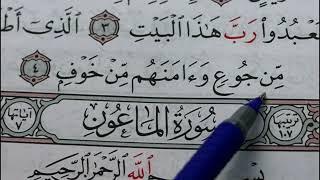 رَبَّ هَٰذَا ٱلْبَيْتِ ٣ ٱلَّذِىٓ
مِّن جُوعٍ وَءَامَنَهُم مِّنْ خَوْفٍ ٤
ترتيبها ١٠٧ سُورَةُ المَاعُونِ آياتها ٧
ٱللَّهِ ٱلرَّحْمَٰنِ ٱلرَّحِيمِ